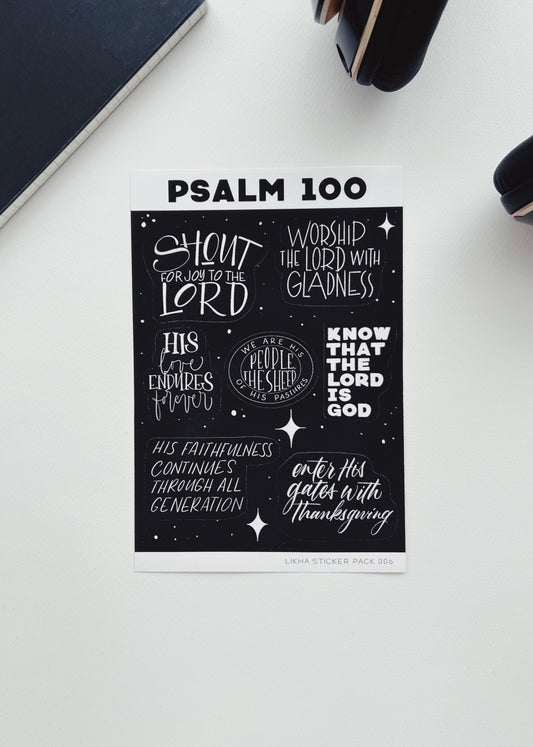 PSALM 100
SHOUT
FOR JOY TO THE
LORD
WORSHIP
THE LORD WITH
GLADNESS
HIS
love
ENDURES
forever
WE ARE HIS
PEOPLE,
THE SHEEP
OF HIS PASTURES
KNOW
THAT
THE
LORD
IS
GOD
HIS FAITHFULNESS
CONTINUES
THROUGH ALL
GENERATION
enter His
gates with
thanksgiving
LIKHA STICKER PACK 006